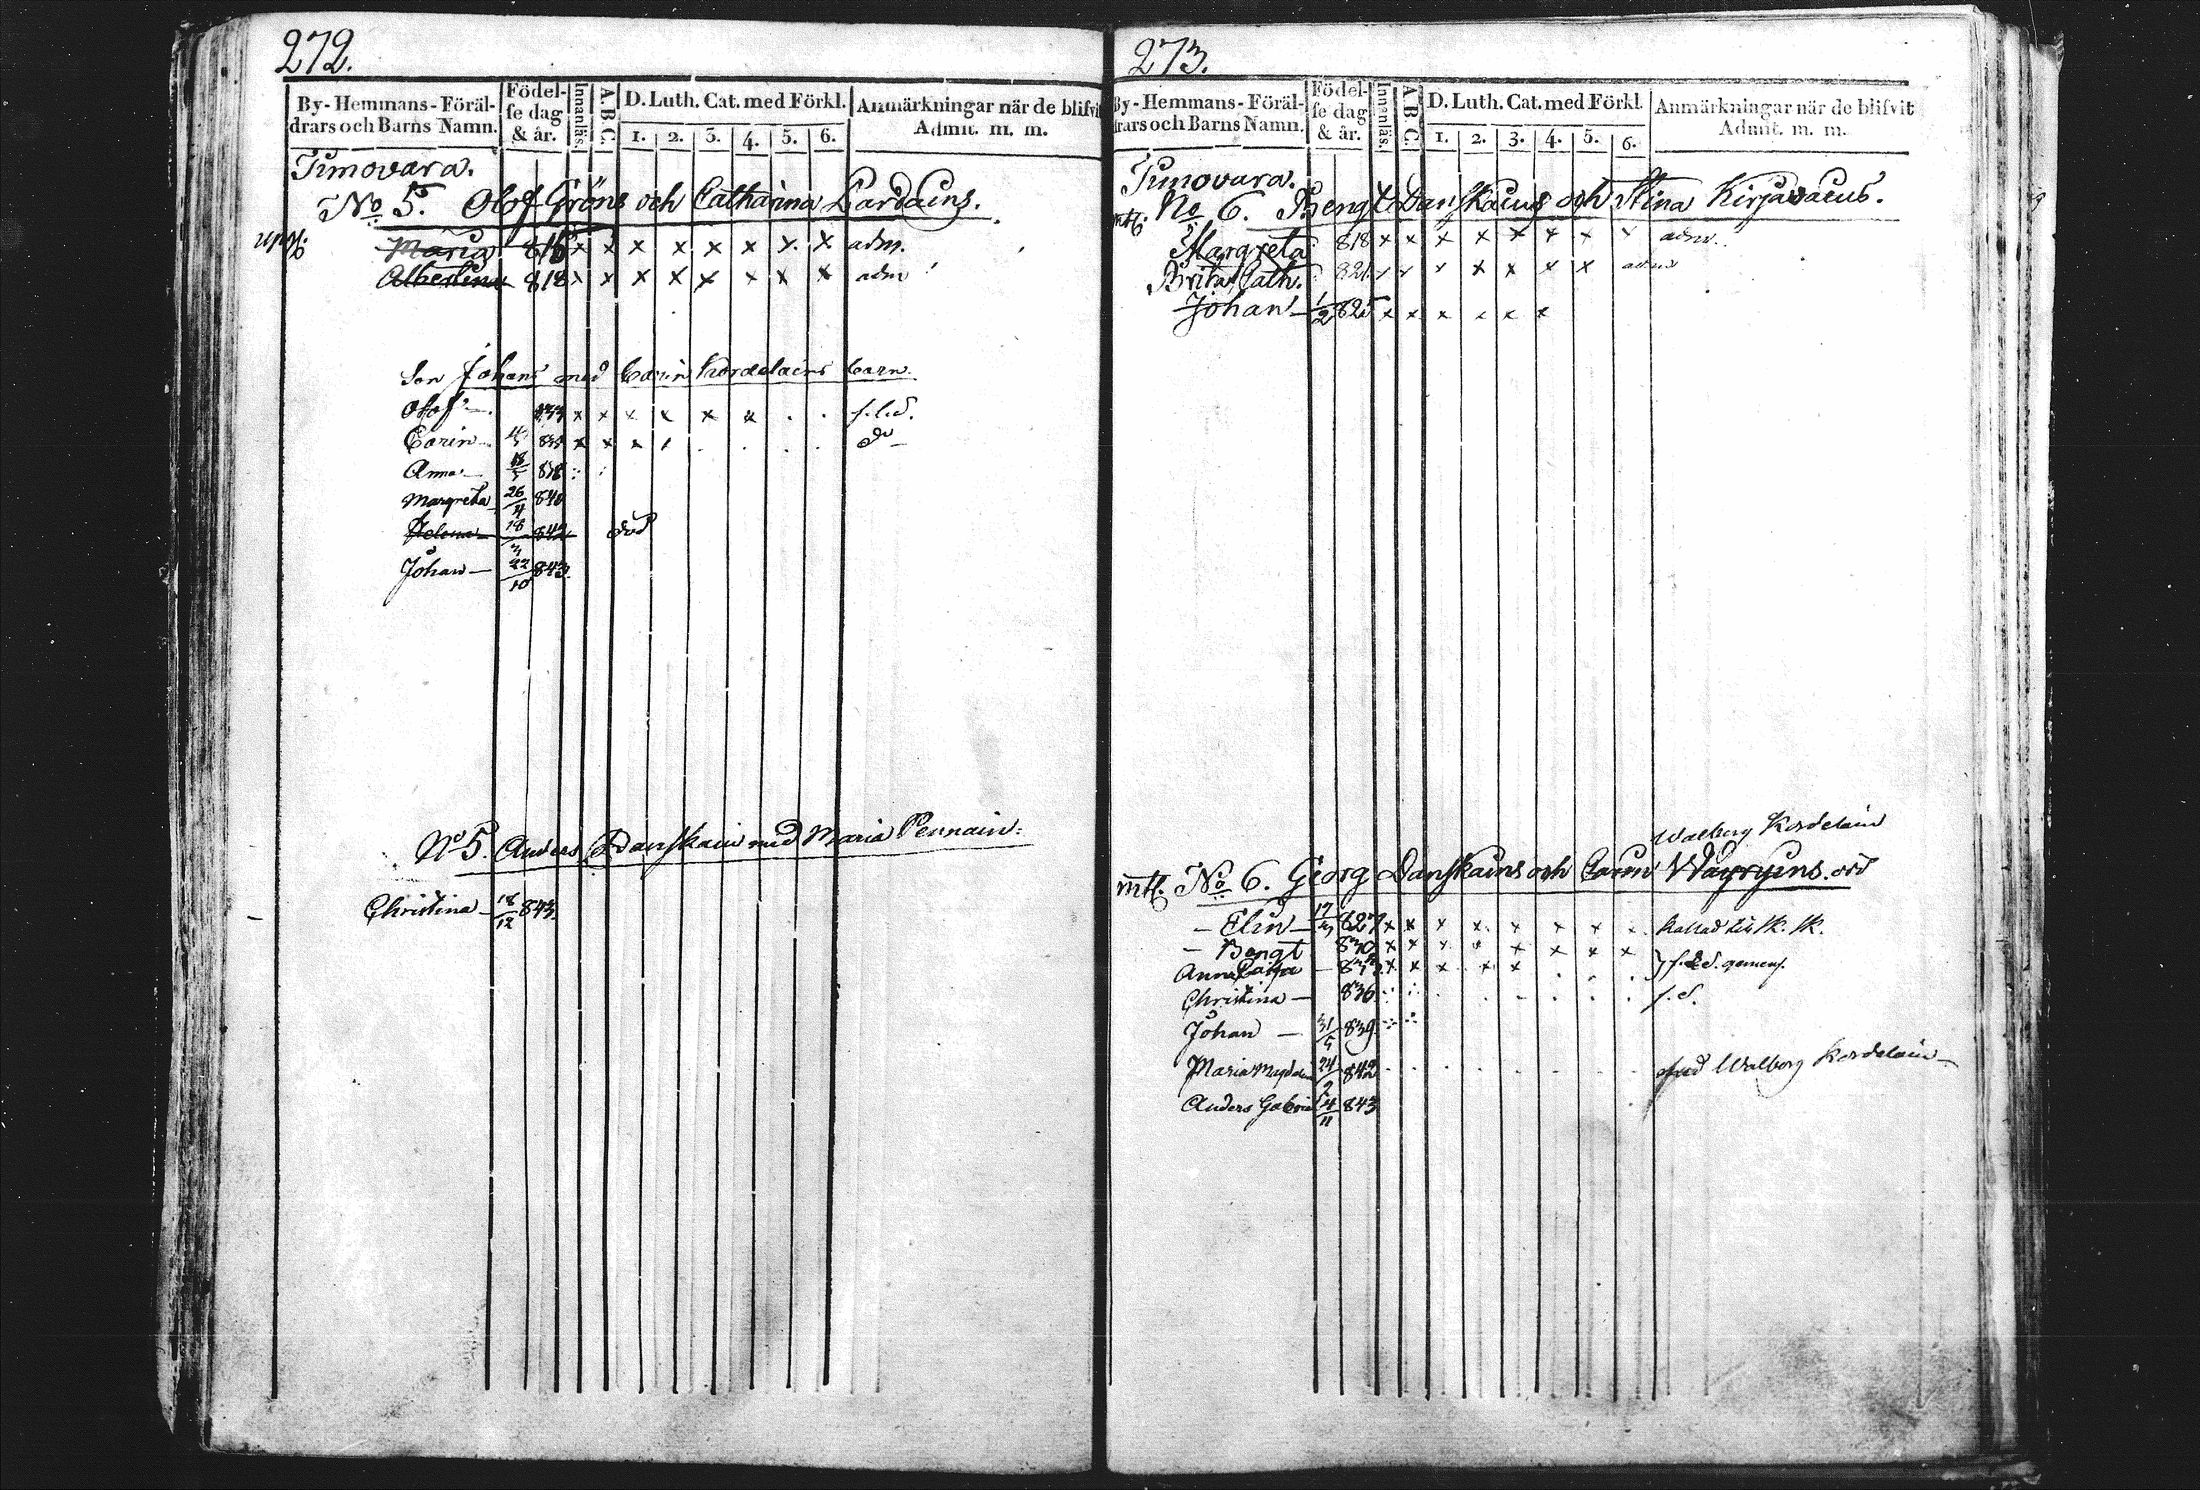 272.
By-Hemmans-Föräl-
drars och Barns Namn.
Födel-
se dag
& år.
Innanläs.
A.B.C.
D. Luth. Cat. med Förkl.
1. 2. 3. 4. 5. 6.
Anmärkningar när de blifvi
Admit. m. m.
Timovara.
No 5. Olof Gröns och Catharina Lardains.
Maria 816 x x x x x x x x adm.
Albertina 818 x x x x x x x x adm
Son Johans med Carin Kordelains barn.
Olof - 833 x x x x x x . . f.l.d.
Carin - 835 x x x . . . . do
Anna - 18/5 838
Margreta 26/4 840
Helena - 18/3 842 död
Johan - 22/10 843
No 5. Anders Danskain med Maria Pennain:
Christina - 18/12 843
273.
By-Hemmans-Föräl-
drars och Barns Namn.
Födel-
se dag
& år.
Innanläs.
A.B.C.
D. Luth. Cat. med Förkl.
1. 2. 3. 4. 5. 6.
Anmärkningar när de blifvit
Admit. m. m.
Timovara.
mtl. No 6. Bengt Danskains och Stina Kirjavaeus.
Margreta 818 x x x x x x x x adm.
Brita Cath. 821 x x x x x x x adm
Johan - 1/2 825 x x x x x x
Walborg Kordelain
mtl. No 6. Georg Danskains och Carin Wäyryins. död
- Elin - 17/3 827 x x x x x x x . kallad till sk. sk.
- Bengt 830 x x x x x x x x
Anna Caisa - 833 x x x x x . . . } f.l.d. gemens.
Christina - 836 . . . . . . f.d.
Johan - 31/5 839
Maria Magdalena 24/2 842 . . . . . . . med Walborg Kordelain
Anders Gabriel 14/11 843